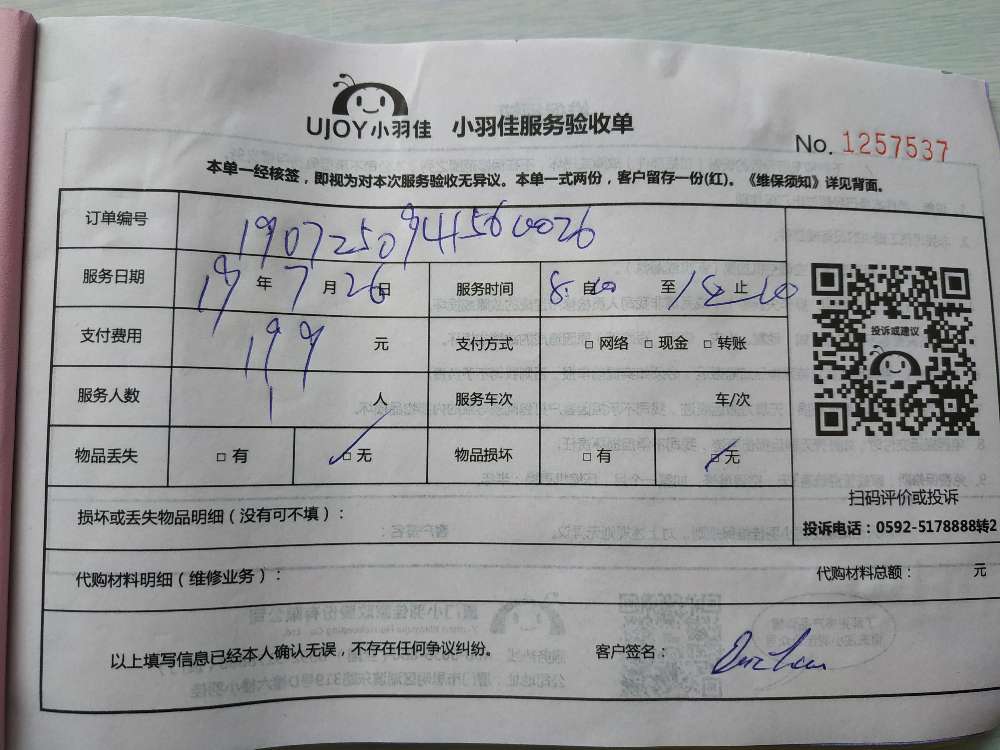 UJOY小羽佳 小羽佳服务验收单
No. 1257537
本单一经核签，即视为对本次服务验收无异议。本单一式两份，客户留存一份(红)。《维保须知》详见背面。
订单编号 1907250941560026
服务日期 19年7月26日 服务时间 8:00自 至12止00
支付费用 199元 支付方式 □网络 □现金 □转账
服务人数 1人 服务车次 车/次
物品丢失 □有 ✓□无 物品损坏 □有 ✓□无
投诉或建议
扫码评价或投诉
损坏或丢失物品明细（没有可不填）：
投诉电话：0592-5178888转2
代购材料明细（维修业务）： 代购材料总额： 元
以上填写信息已经本人确认无误，不存在任何争议纠纷。 客户签名：